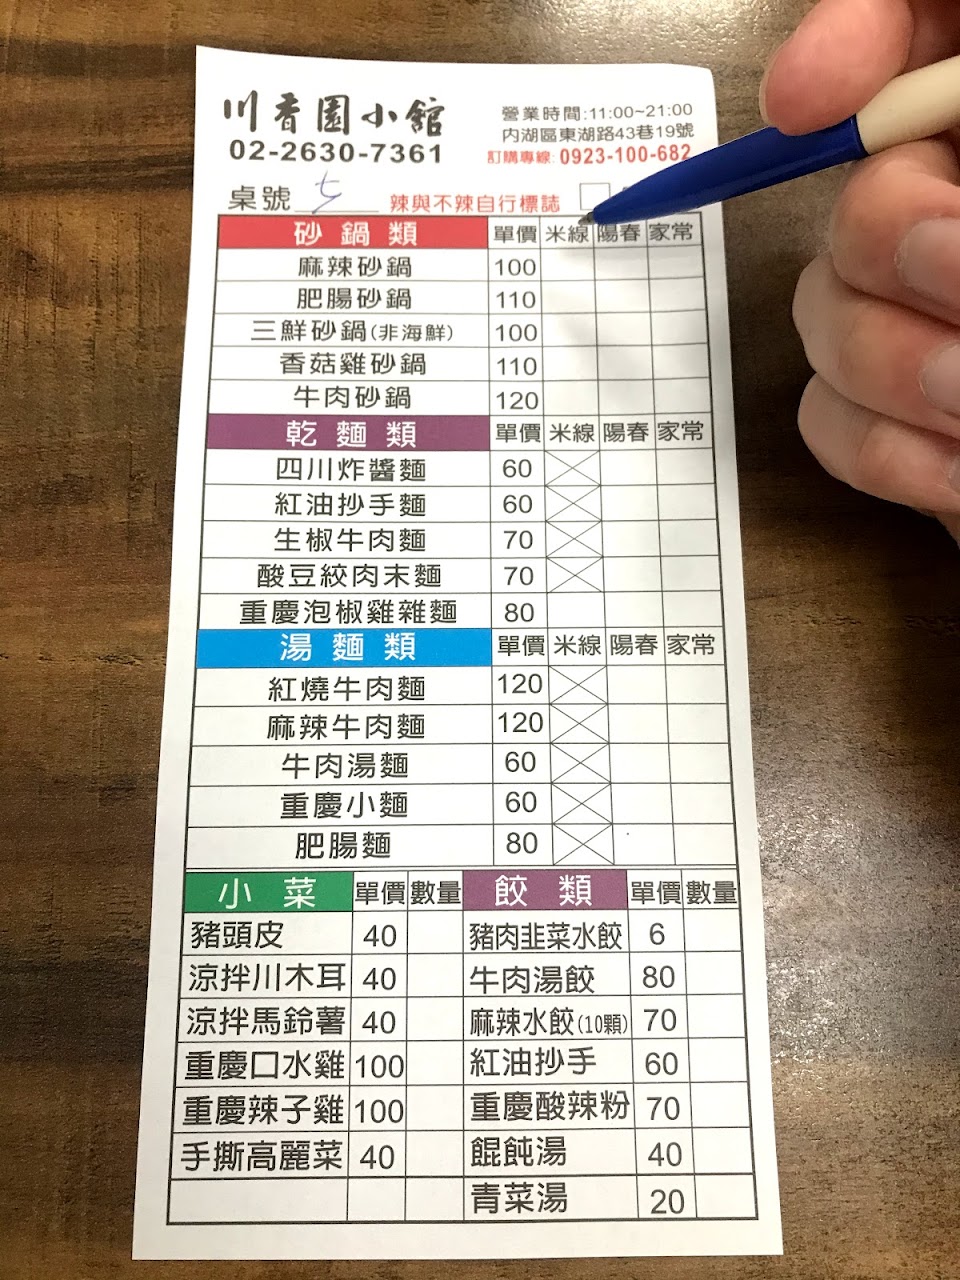 川香園小館
02-2630-7361
營業時間:11:00~21:00
內湖區東湖路43巷19號
訂購專線: 0923-100-682
桌號 七 辣與不辣自行標誌
砂鍋類 單價 米線 陽春 家常
麻辣砂鍋 100
肥腸砂鍋 110
三鮮砂鍋(非海鮮) 100
香菇雞砂鍋 110
牛肉砂鍋 120
乾麵類 單價 米線 陽春 家常
四川炸醬麵 60
紅油抄手麵 60
生椒牛肉麵 70
酸豆絞肉末麵 70
重慶泡椒雞雜麵 80
湯麵類 單價 米線 陽春 家常
紅燒牛肉麵 120
麻辣牛肉麵 120
牛肉湯麵 60
重慶小麵 60
肥腸麵 80
小菜 單價 數量 餃類 單價 數量
豬頭皮 40 豬肉韭菜水餃 6
涼拌川木耳 40 牛肉湯餃 80
涼拌馬鈴薯 40 麻辣水餃(10顆) 70
重慶口水雞 100 紅油抄手 60
重慶辣子雞 100 重慶酸辣粉 70
手撕高麗菜 40 餛飩湯 40
青菜湯 20